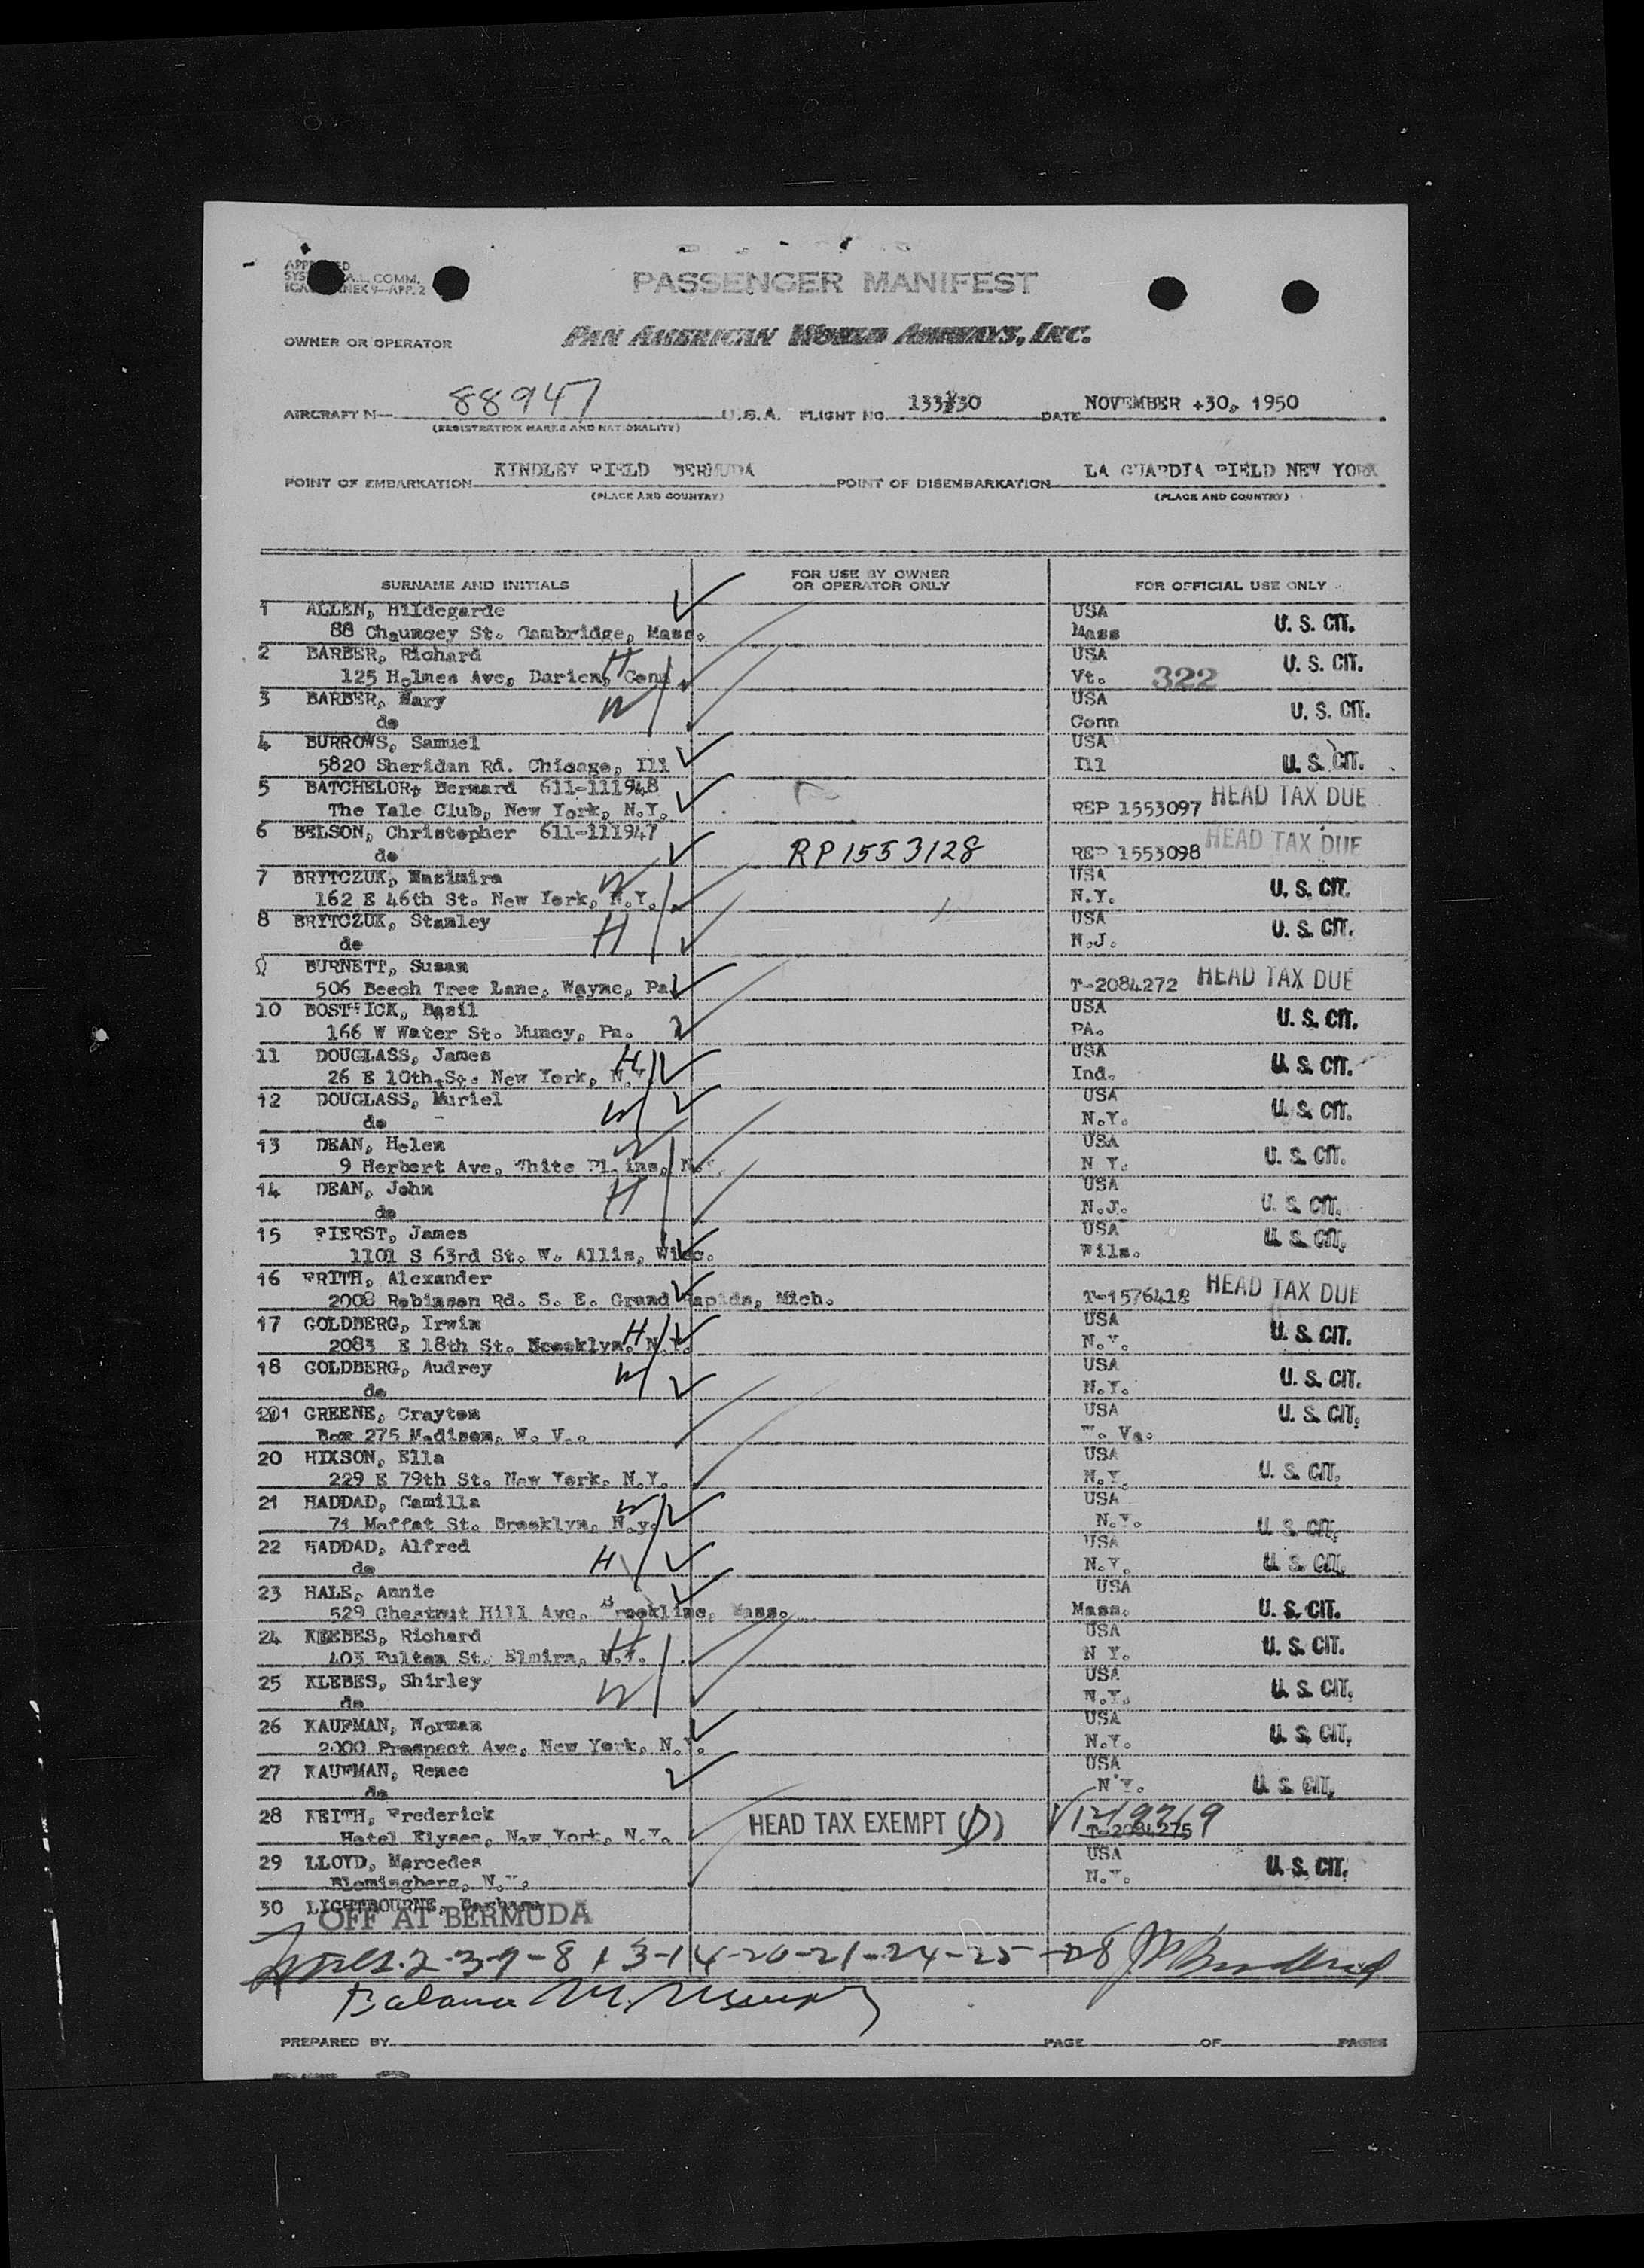 PASSENGER MANIFEST
A.L. COMM.
OWNER OR OPERATOR PAN AMERICAN WORLD AIRWAYS, INC.
AIRCRAFT N— 88947 U.S.A. FLIGHT NO. DATE NOVEMBER 30, 1950
(REGISTRATION MARKS AND NATIONALITY)
POINT OF EMBARKATION KINDLEY FIELD BERMUDA POINT OF DISEMBARKATION LA GUARDIA FIELD NEW YORK
(PLACE AND COUNTRY) (PLACE AND COUNTRY)
SURNAME AND INITIALS FOR USE BY OWNER OR OPERATOR ONLY FOR OFFICIAL USE ONLY
1 ALLEN, Hildegarde USA
88 Chauncey St. Cambridge, Mass. Mass U. S. CIT.
2 BARBER, Richard H USA
125 Holmes Ave, Darien, Conn. Vt. 322 U. S. CIT.
3 BARBER, Mary W USA
do Conn U. S. CIT.
4 BURROWS, Samuel USA
5820 Sheridan Rd. Chicago, Ill Ill U. S. CIT.
5 BATCHELOR, Bernard 611-111948
The Yale Club, New York, N.Y. REP 1553097 HEAD TAX DUE
6 BELSON, Christopher 611-111947
do RP1553128 REP 1553098 HEAD TAX DUE
7 BRYTCZUK, Kazimira W USA
162 E 46th St. New York, N.Y. N.Y. U. S. CIT.
8 BRYTCZUK, Stanley H USA
do N.J. U. S. CIT.
BURNETT, Susan
506 Beech Tree Lane, Wayne, Pa T-2084272 HEAD TAX DUE
10 BOSTWICK, Basil USA
166 W Water St. Muncy, Pa. PA. U. S. CIT.
11 DOUGLASS, James H USA
26 E 10th St. New York, N.Y. Ind. U. S. CIT.
12 DOUGLASS, Muriel W USA
do N.Y. U. S. CIT.
13 DEAN, Helen W USA
9 Herbert Ave, White Plains, N.Y. N Y. U. S. CIT.
14 DEAN, John H USA
do N.J. U. S. CIT.
15 FIERST, James USA
1101 S 63rd St. W. Allis, Wisc. Wils. U. S. CIT.
16 FRITH, Alexander
2008 Robinson Rd. S. E. Grand Rapids, Mich. T-1576418 HEAD TAX DUE
17 GOLDBERG, Irwin H USA
2083 E 18th St. Brooklyn, N.Y. N.Y. U. S. CIT.
18 GOLDBERG, Audrey W USA
do N.Y. U. S. CIT.
GREENE, Crayton USA U. S. CIT.
Box 275 Madison, W. V.. W. Va.
20 HIXSON, Ella USA
229 E 79th St. New York, N.Y. N.Y. U. S. CIT.
21 HADDAD, Camilla W USA
71 Moffat St. Brooklyn, N.y. N.Y. U. S. CIT.
22 HADDAD, Alfred H USA
do N.Y. U. S. CIT.
23 HALE, Annie USA
529 Chestnut Hill Ave. Brookline, Mass. Mass. U. S. CIT.
24 KLEBES, Richard H USA
403 Fulton St. Elmira, N.Y. N Y. U. S. CIT.
25 KLEBES, Shirley W USA
do N.Y. U. S. CIT.
26 KAUFMAN, Norman USA
2000 Prospect Ave, New York, N.Y. N.Y. U. S. CIT.
27 KAUFMAN, Renee USA
do N Y. U. S. CIT.
28 KEITH, Frederick HEAD TAX EXEMPT (D)
Hotel Elysee, New York, N.Y. T-2084275
29 LLOYD, Mercedes USA
Blomingberg, N.Y. N.Y. U. S. CIT.
30 LIGHTBOURNE, Barbara
OFF AT BERMUDA
2-3-7-8 13-14-20-21-24-25-28
Balance
PREPARED BY PAGE OF PAGES